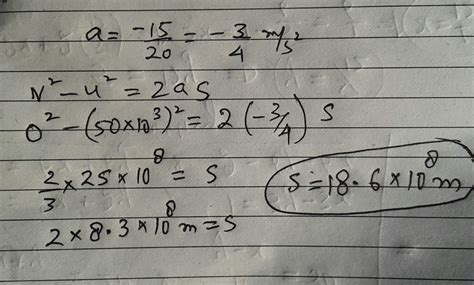 a = -15/20 = -3/4 m/s²
v² - u² = 2as
0² - (50×10³)² = 2(-3/4) S
2/3 × 25 × 10⁸ = S
2 × 8.3 × 10⁸ m = S
S = 18.6 × 10⁸ m